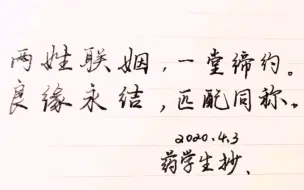 两姓联姻，一堂缔约。
良缘永结，匹配同称。
2020.4.3
药学生抄、